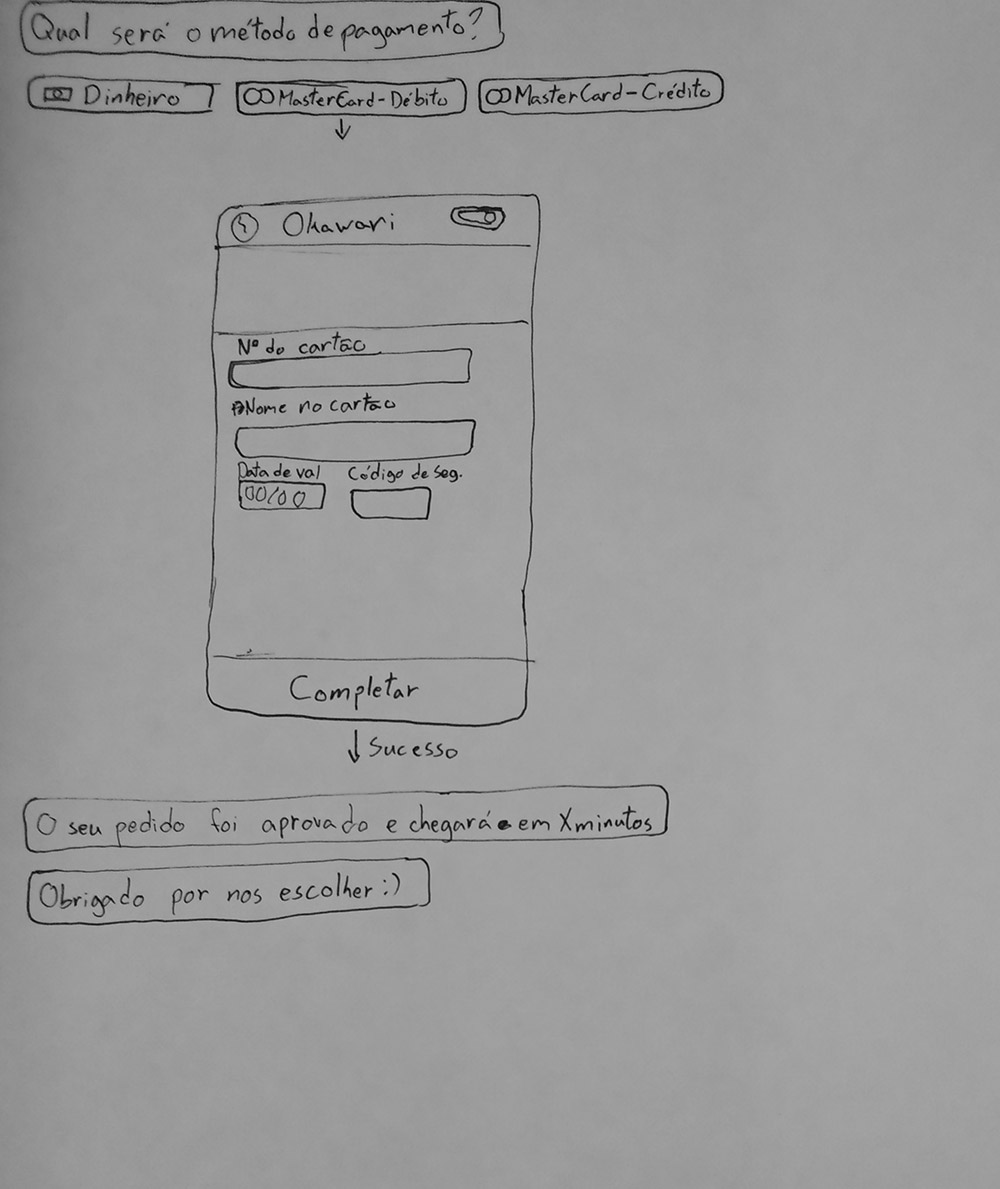 Qual será o método de pagamento?
Dinheiro
MasterCard-Débito
MasterCard-Crédito
Okawari
Nº do cartão
Nome no cartão
Data de val
Código de seg.
00/00
Completar
Sucesso
O seu pedido foi aprovado e chegará em X minutos
Obrigado por nos escolher :)